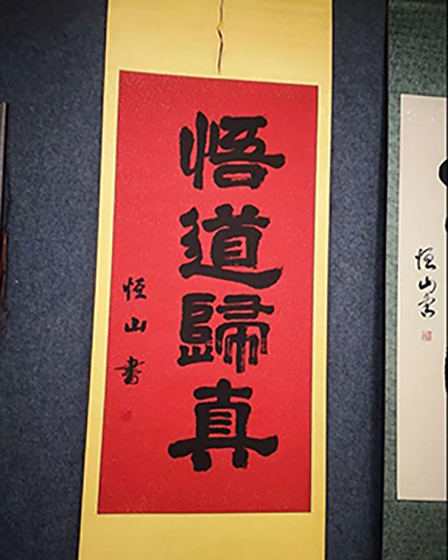 悟道歸真
恆山書
恆山書